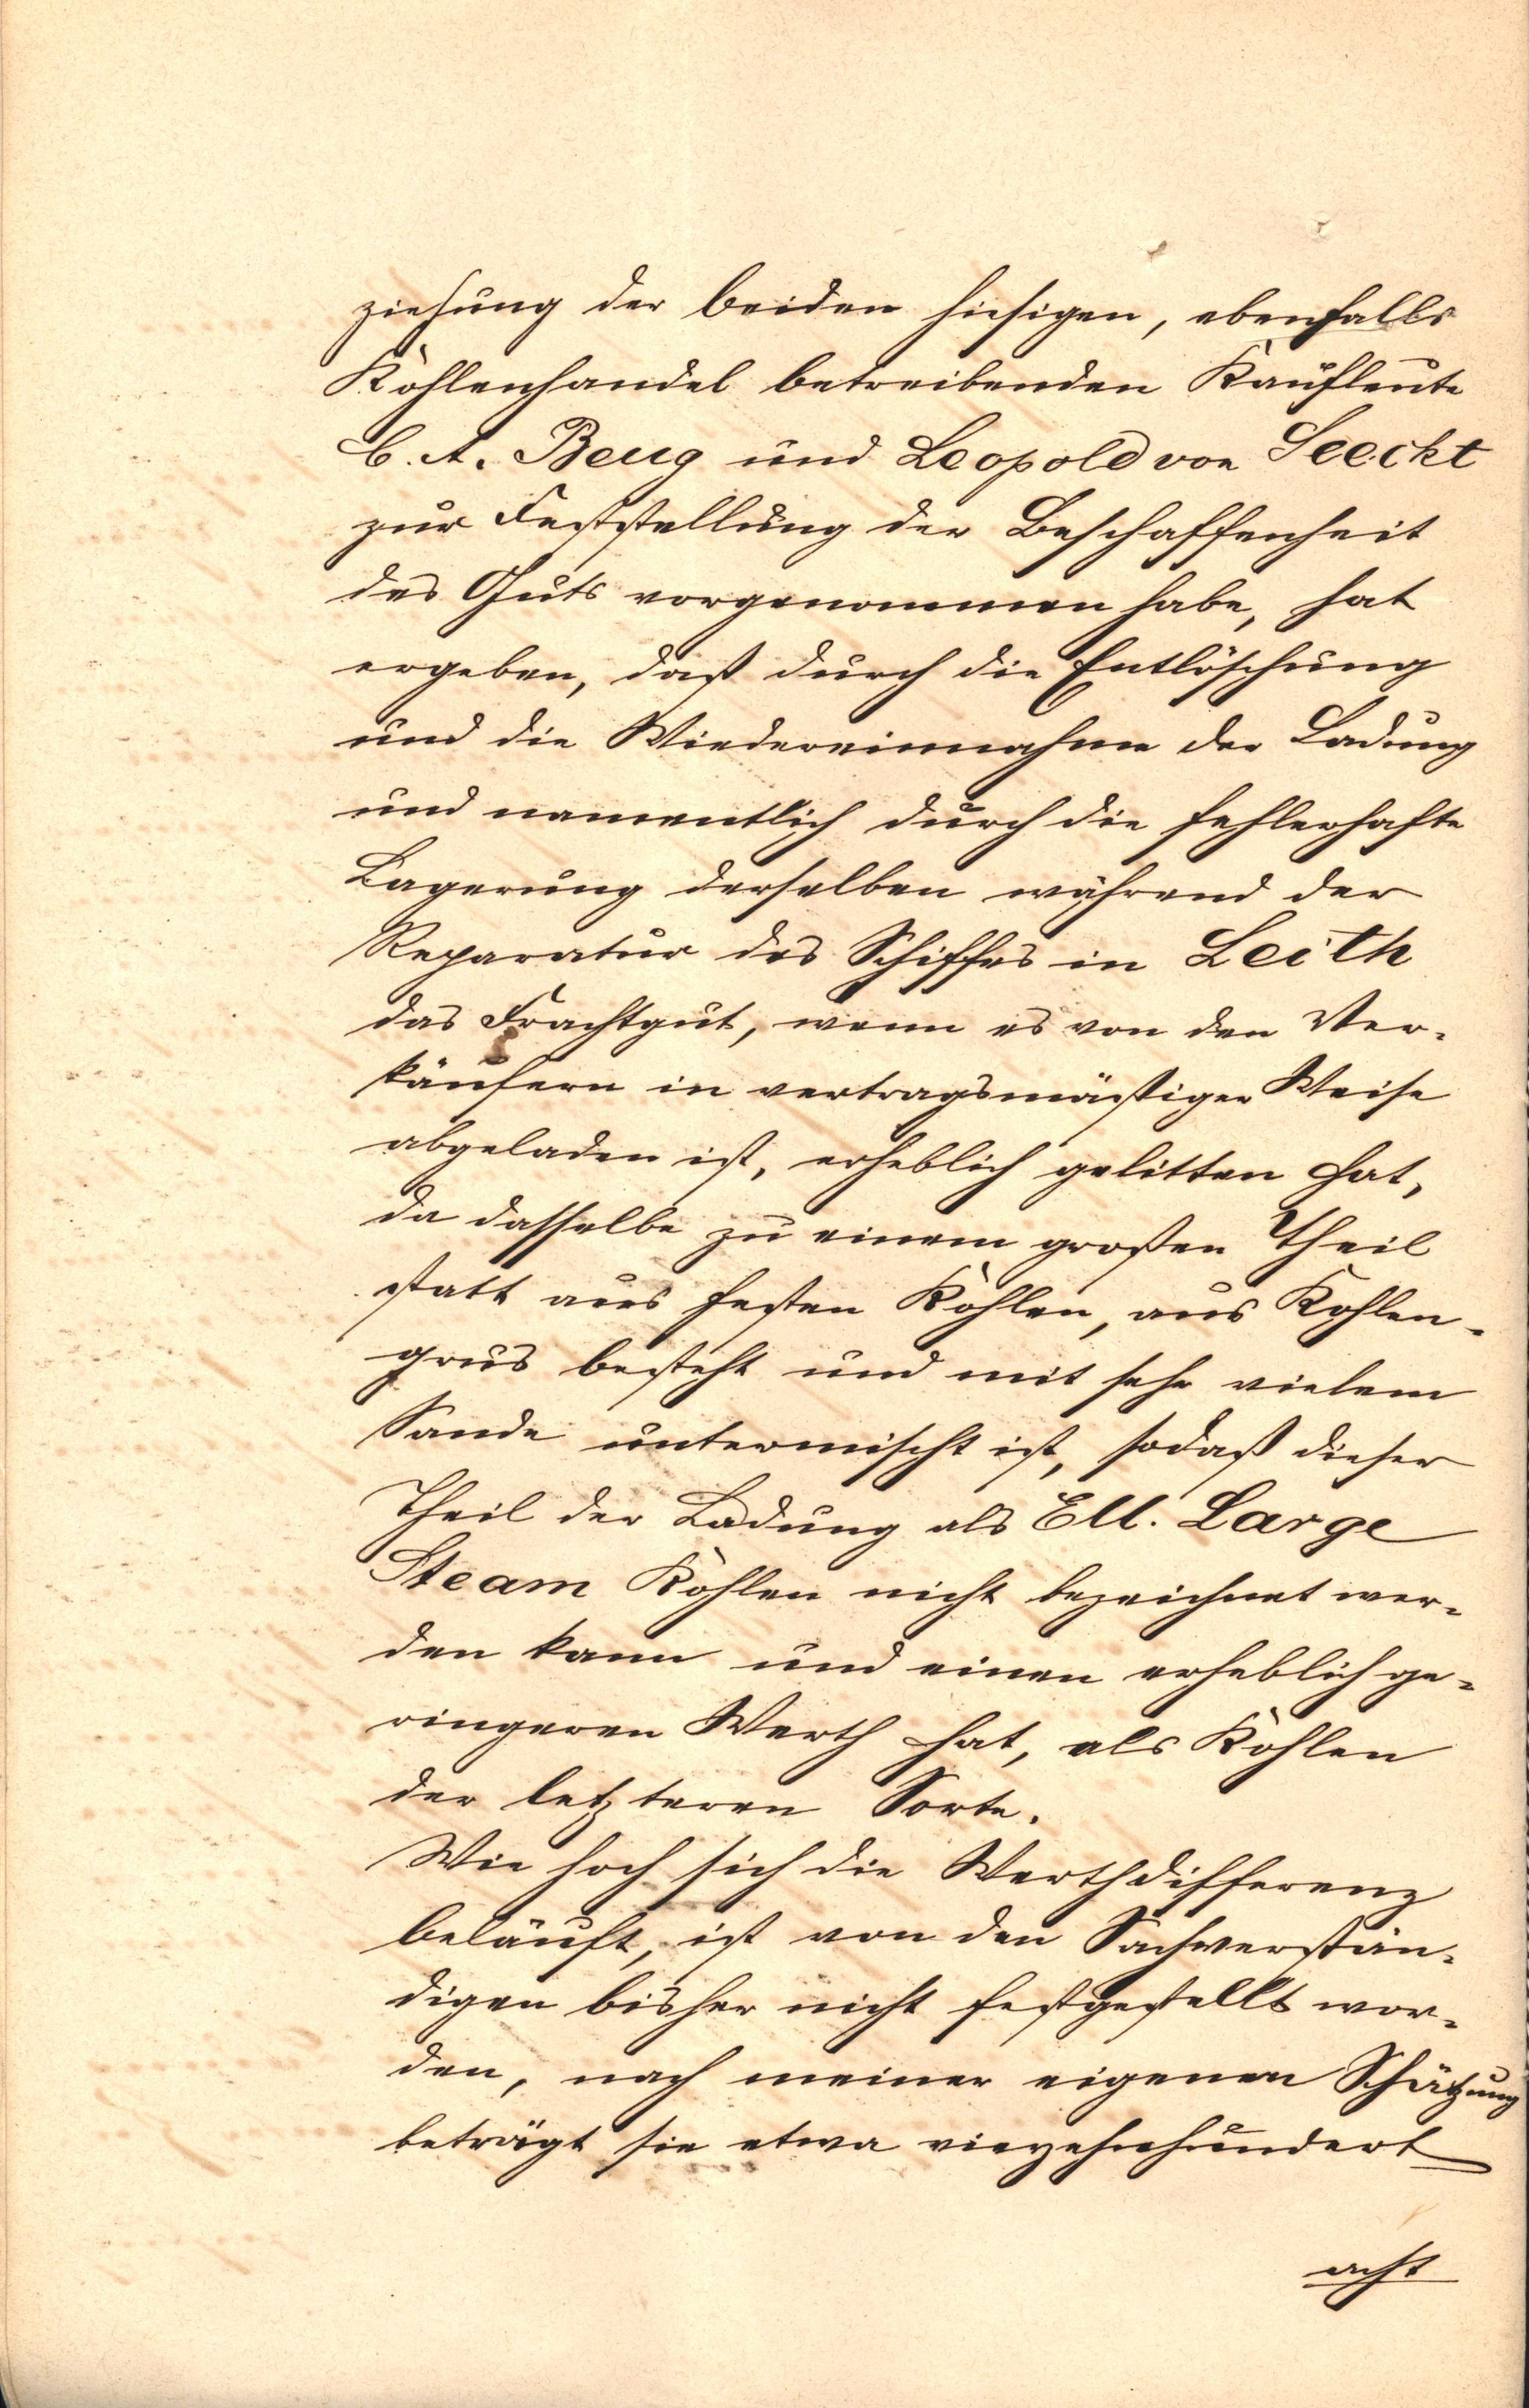 ziehung der beiden hiesigen, ebenfalls
Kohlenhandel betreibenden Kaufleute
C. A. Beug und Leopold von Seeckt
zur Feststellung der Beschaffenheit
des Guts vorgenommen habe, hat
ergeben, daß durch die Entlöschung
und die Wiedereinnahme der Ladung
und namentlich durch die fehlerhafte
Lagerung derselben während der
Reparatur des Schiffes in Leith
das Frachtgut, wenn es von den Ver-
käufern in vertragsmäßiger Weise
abgeladen ist, erheblich gelitten hat,
da dasselbe zu einem großen Theil
statt aus festen Kohlen, aus Kohlen-
grus besteht und mit sehr vielem
Sande untermischt ist, sodaß dieser
Theil der Ladung als Ell. Large
Steam Kohlen nicht bezeichnet wer-
den kann und einen erheblich ge-
ringeren Werth hat, als Kohlen
der letzteren Sorte.
Wie hoch sich die Werthdifferenz
beläuft, ist von den Sachverstän-
digen bisher nicht festgestellt wor-
den, nach meiner eigenen Schätzung
beträgt sie etwa vierzehnhundert
acht